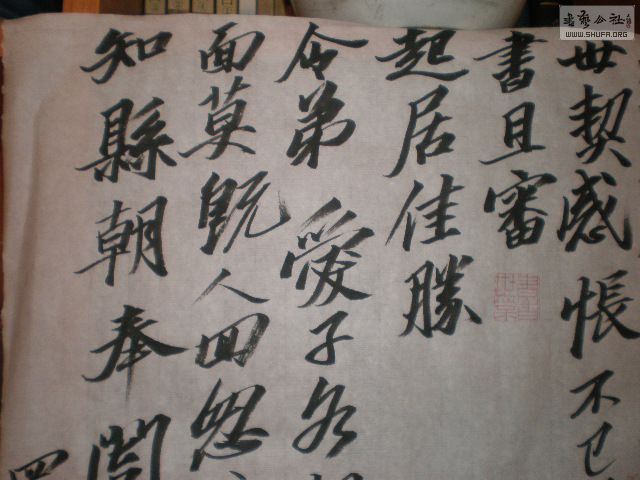 書藝公社
WWW.SHUFA.ORG
世契感悵不已
書且審
起居佳勝
令弟 愛子各
面莫既人回怱
知縣朝奉閣
四